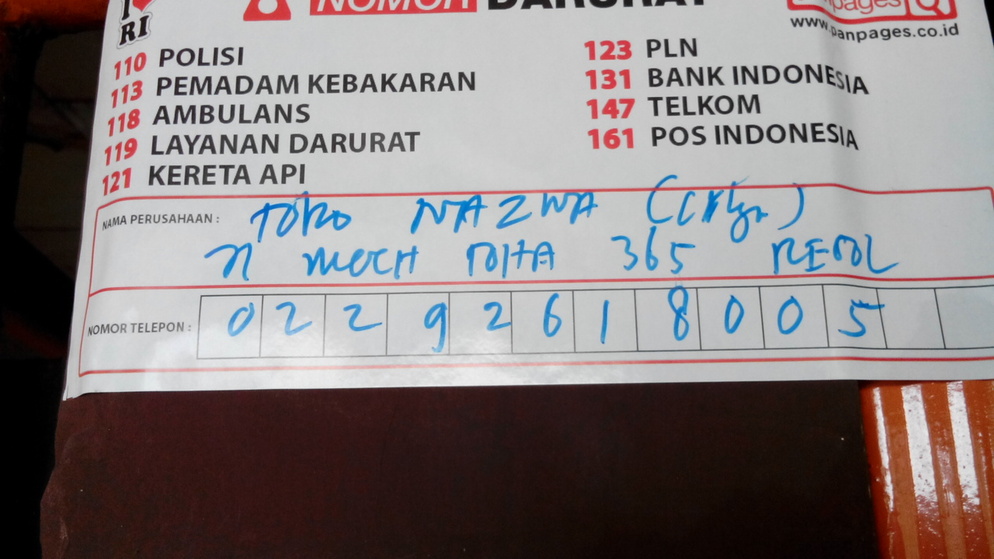 I ❤ RI
NOMOR DARURAT
pages
www.panpages.co.id
110 POLISI
113 PEMADAM KEBAKARAN
118 AMBULANS
119 LAYANAN DARURAT
121 KERETA API
123 PLN
131 BANK INDONESIA
147 TELKOM
161 POS INDONESIA
NAMA PERUSAHAAN : TOKO NAZWA
Jl MOCH TOHA 365
NOMOR TELEPON : 02292618005